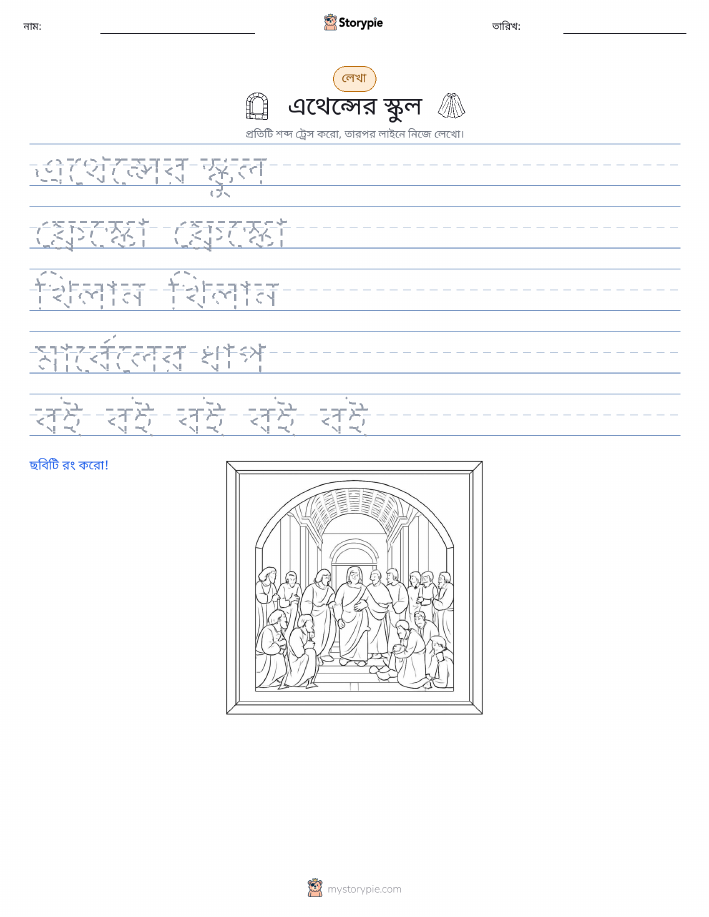 নাম:
Storypie
তারিখ:
লেখা
এথেন্সের স্কুল
প্রতিটি শব্দ ট্রেস করো, তারপর লাইনে নিজে লেখো।
এথেন্সের স্কুল
ফ্রেস্কো ফ্রেস্কো
খিলান খিলান
মার্বেলের ধাপ
বই বই বই বই বই
ছবিটি রং করো!
mystorypie.com